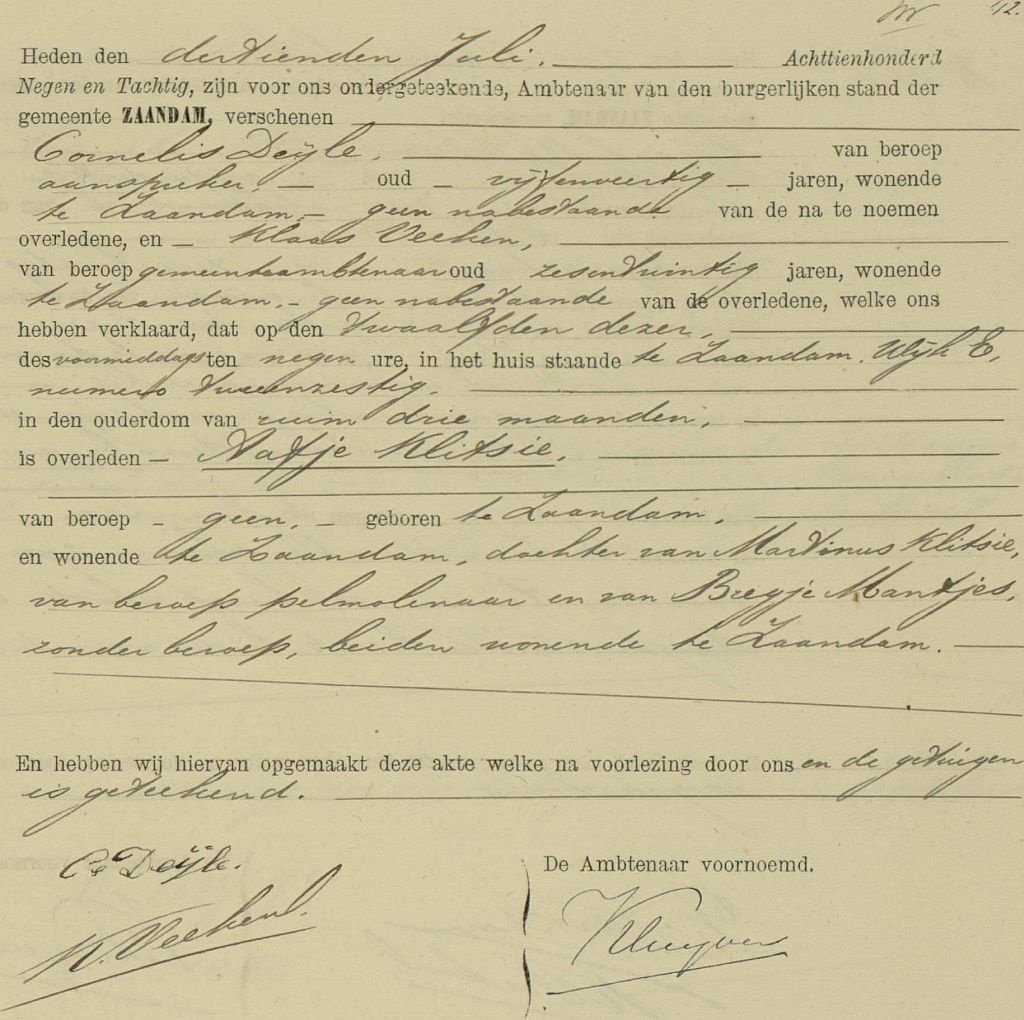 42.
Heden den dertienden Juli. Achttienhonderd
Negen en Tachtig, zijn voor ons ondergeteekende, Ambtenaar van den burgerlijken stand der
gemeente ZAANDAM, verschenen
Cornelis Deÿle. van beroep
aanspreker. oud vijfenveertig jaren, wonende
te Zaandam. geen nabestaande van de na te noemen
overledene, en Klaas Veeken,
van beroep gemeenteambtenaar oud zesentwintig jaren, wonende
te Zaandam. geen nabestaande van de overledene, welke ons
hebben verklaard, dat op den twaalfden dezer,
des voormiddags ten negen ure, in het huis staande te Zaandam. Wijk E,
numero tweeenzestig.
in den ouderdom van ruim drie maanden,
is overleden Aafje Klitsie,
van beroep geen. geboren te Zaandam,
en wonende te Zaandam, dochter van Martinus Klitsie,
van beroep pelmolenaar en van Bregje Mantjes,
zonder beroep, beiden wonende te Zaandam.
En hebben wij hiervan opgemaakt deze akte welke na voorlezing door ons en de getuigen
is geteekend.
C. Deÿle.
De Ambtenaar voornoemd.
K. Veeken.